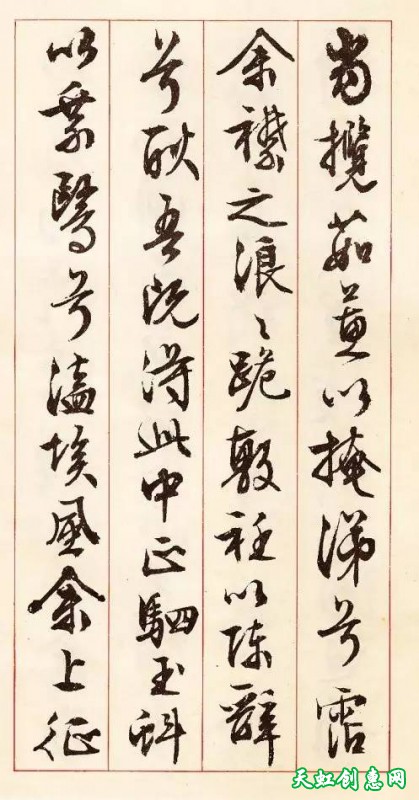 當攬茹蕙以掩涕兮霑
余襟之浪〻跪敷衽以陳辭
兮耿吾既得此中正駟玉虯
以椉鷖兮溘埃風余上征
天虹创惠网